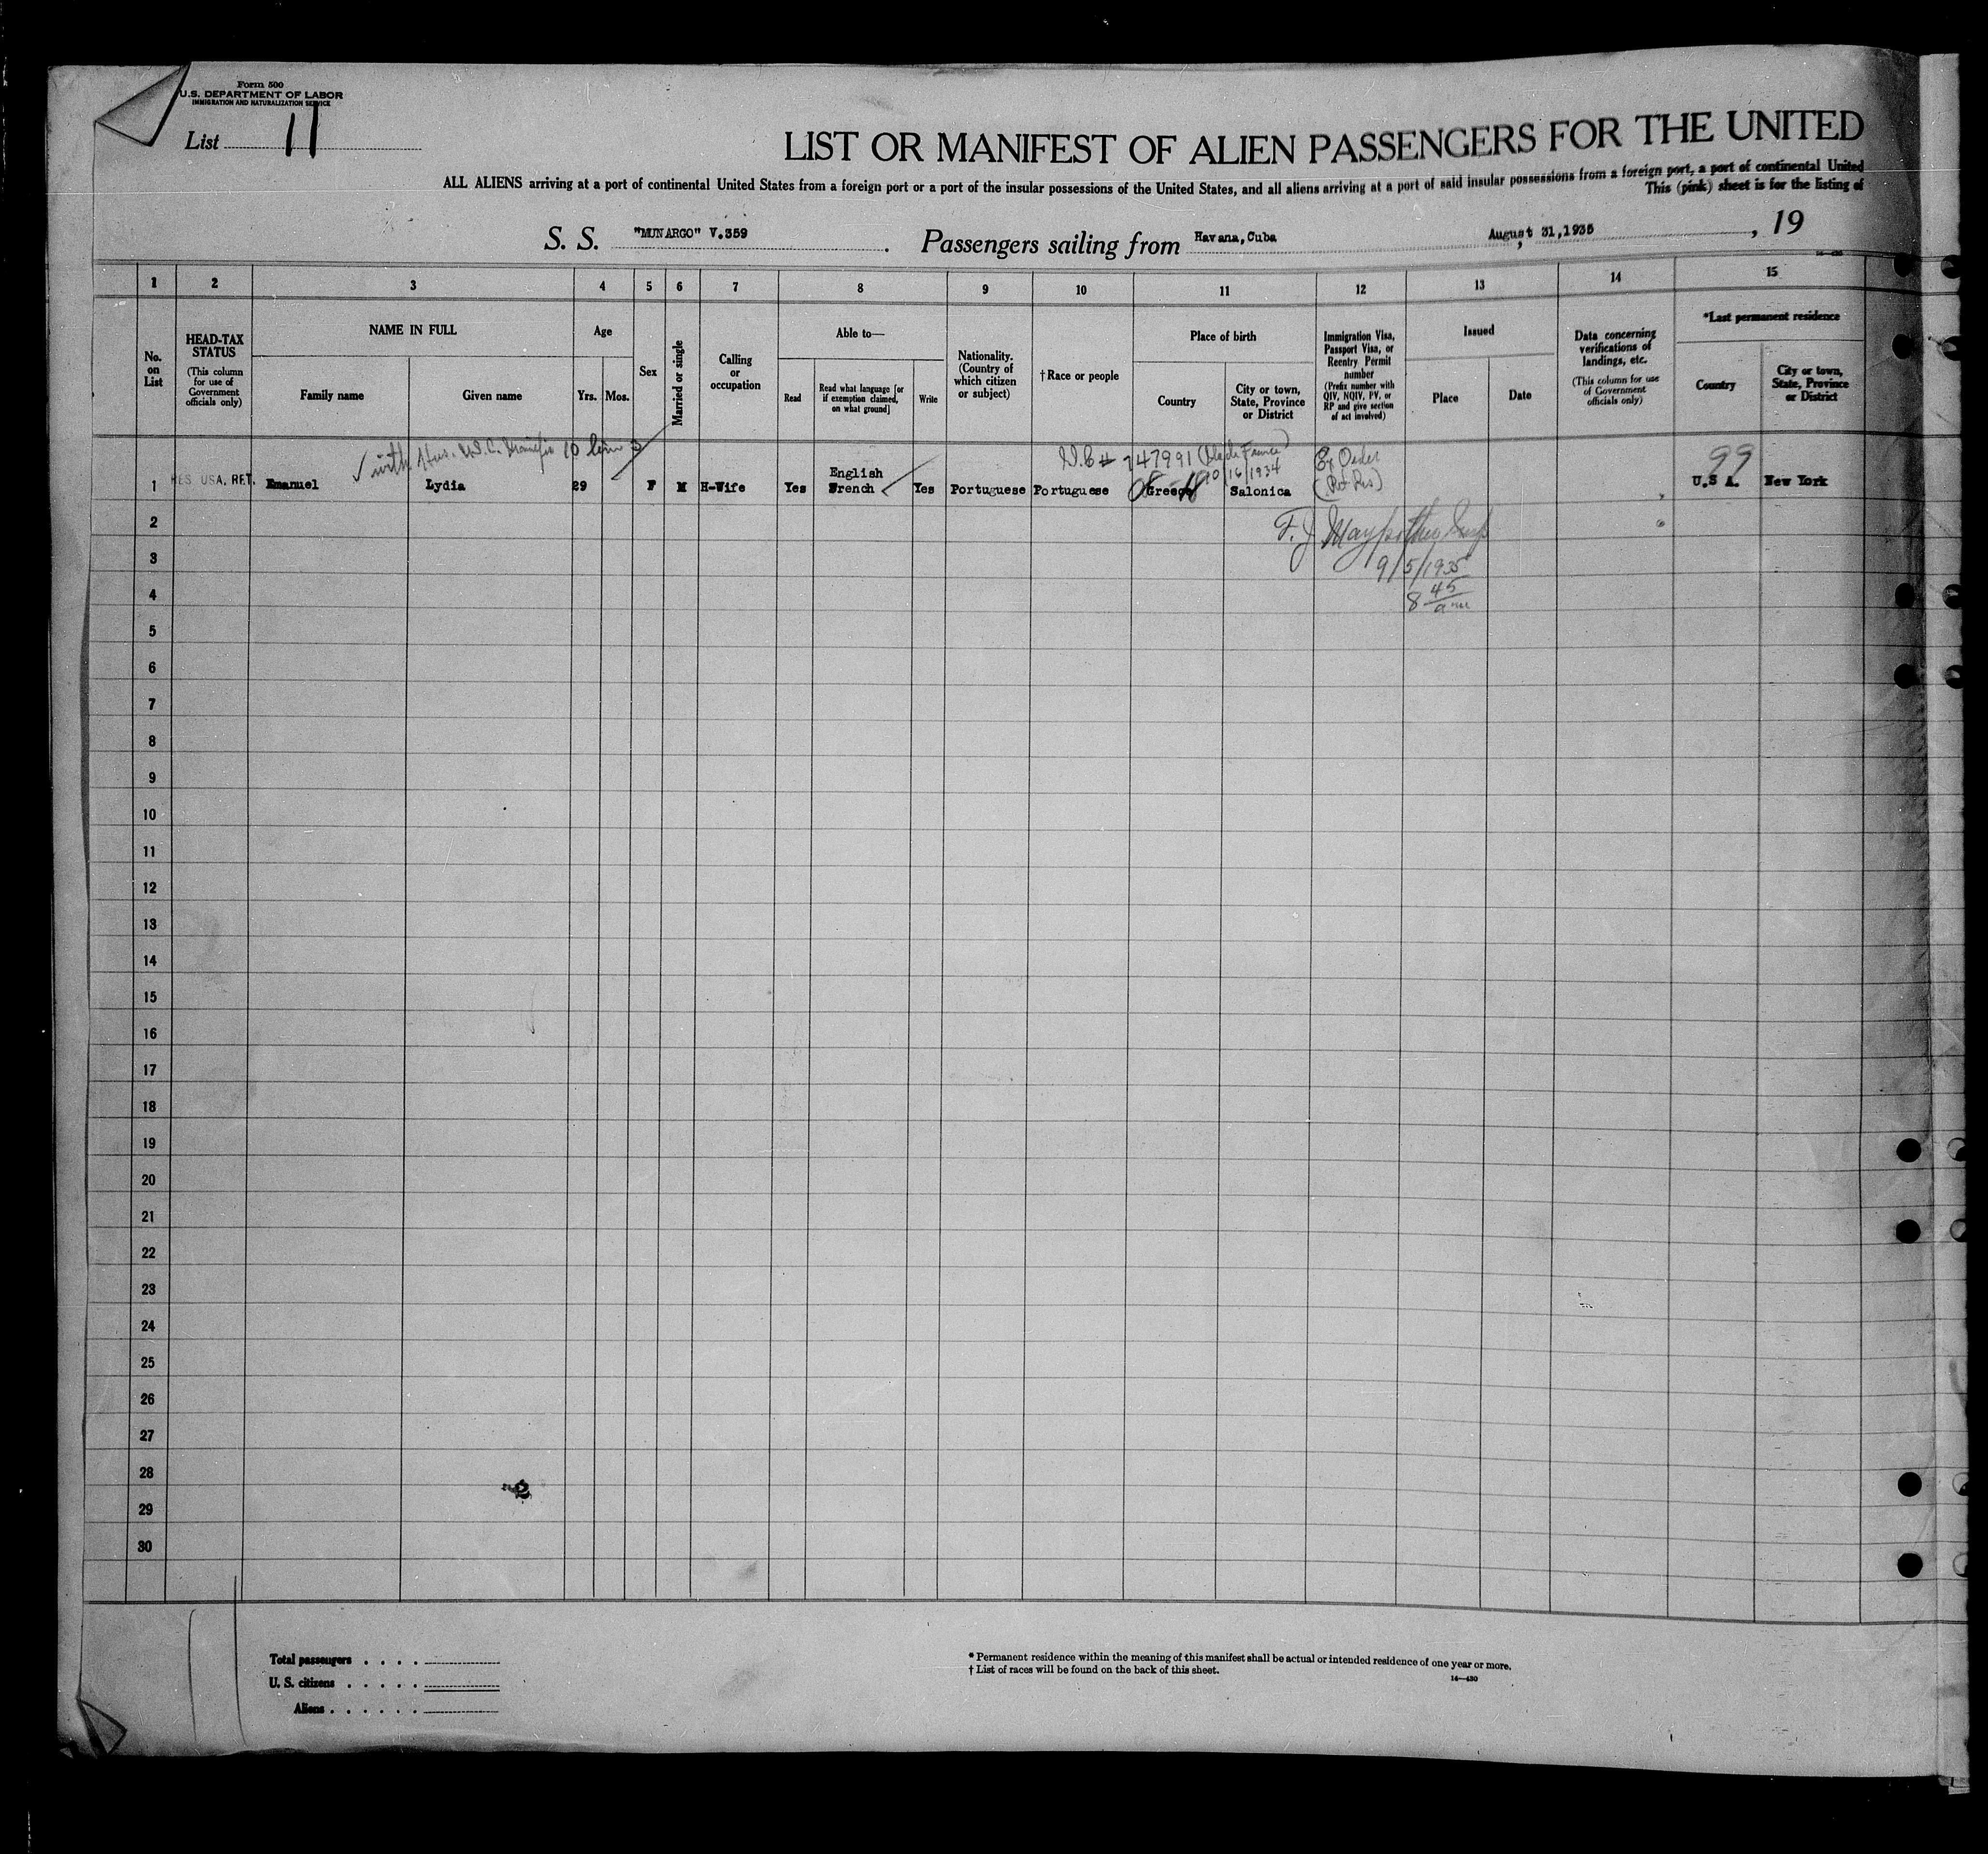 Form 500
U.S. DEPARTMENT OF LABOR
IMMIGRATION AND NATURALIZATION SERVICE
List 11
LIST OR MANIFEST OF ALIEN PASSENGERS FOR THE UNITED
ALL ALIENS arriving at a port of continental United States from a foreign port or a port of the insular possessions of the United States, and all aliens arriving at a port of said insular possessions from a foreign port, a port of continental United
This (pink) sheet is for the listing of
S. S. "MUNARGO" V.359. Passengers sailing from Havana, Cuba August 31, 1935, 19
14—430
1 2 3 4 5 6 7 8 9 10 11 12 13 14 15
No. on List
HEAD-TAX STATUS
(This column for use of Government officials only)
NAME IN FULL
Family name
Given name
Age
Yrs. Mos.
Sex
Married or single
Calling or occupation
Able to—
Read
Read what language [or if exemption claimed, on what ground]
Write
Nationality. (Country of which citizen or subject)
†Race or people
Place of birth
Country
City or town, State, Province or District
Immigration Visa, Passport Visa, or Reentry Permit number
(Prefix number with QIV, NQIV, PV, or RP and give section of act involved)
Issued
Place
Date
Data concerning verifications of landings, etc.
(This column for use of Government officials only)
*Last permanent residence
Country
City or town, State, Province or District
✓ with Hus. U.S.C. Manifest 10 line 3
747991
10/16/1934
Ex Order
99
1 RES USA, RET. Emanuel Lydia 29 F M H-Wife Yes English French Yes Portuguese Portuguese Greece Salonica (Ret Res) U.S A. New York
2
F. J.
3
9/5/1935
4
8 45 am
5
6
7
8
9
10
11
12
13
14
15
16
17
18
19
20
21
22
23
24
25
26
27
28
29
30
Total passengers . . . .
U. S. citizens . . . . .
Aliens . . . . . .
* Permanent residence within the meaning of this manifest shall be actual or intended residence of one year or more.
† List of races will be found on the back of this sheet.
14—430